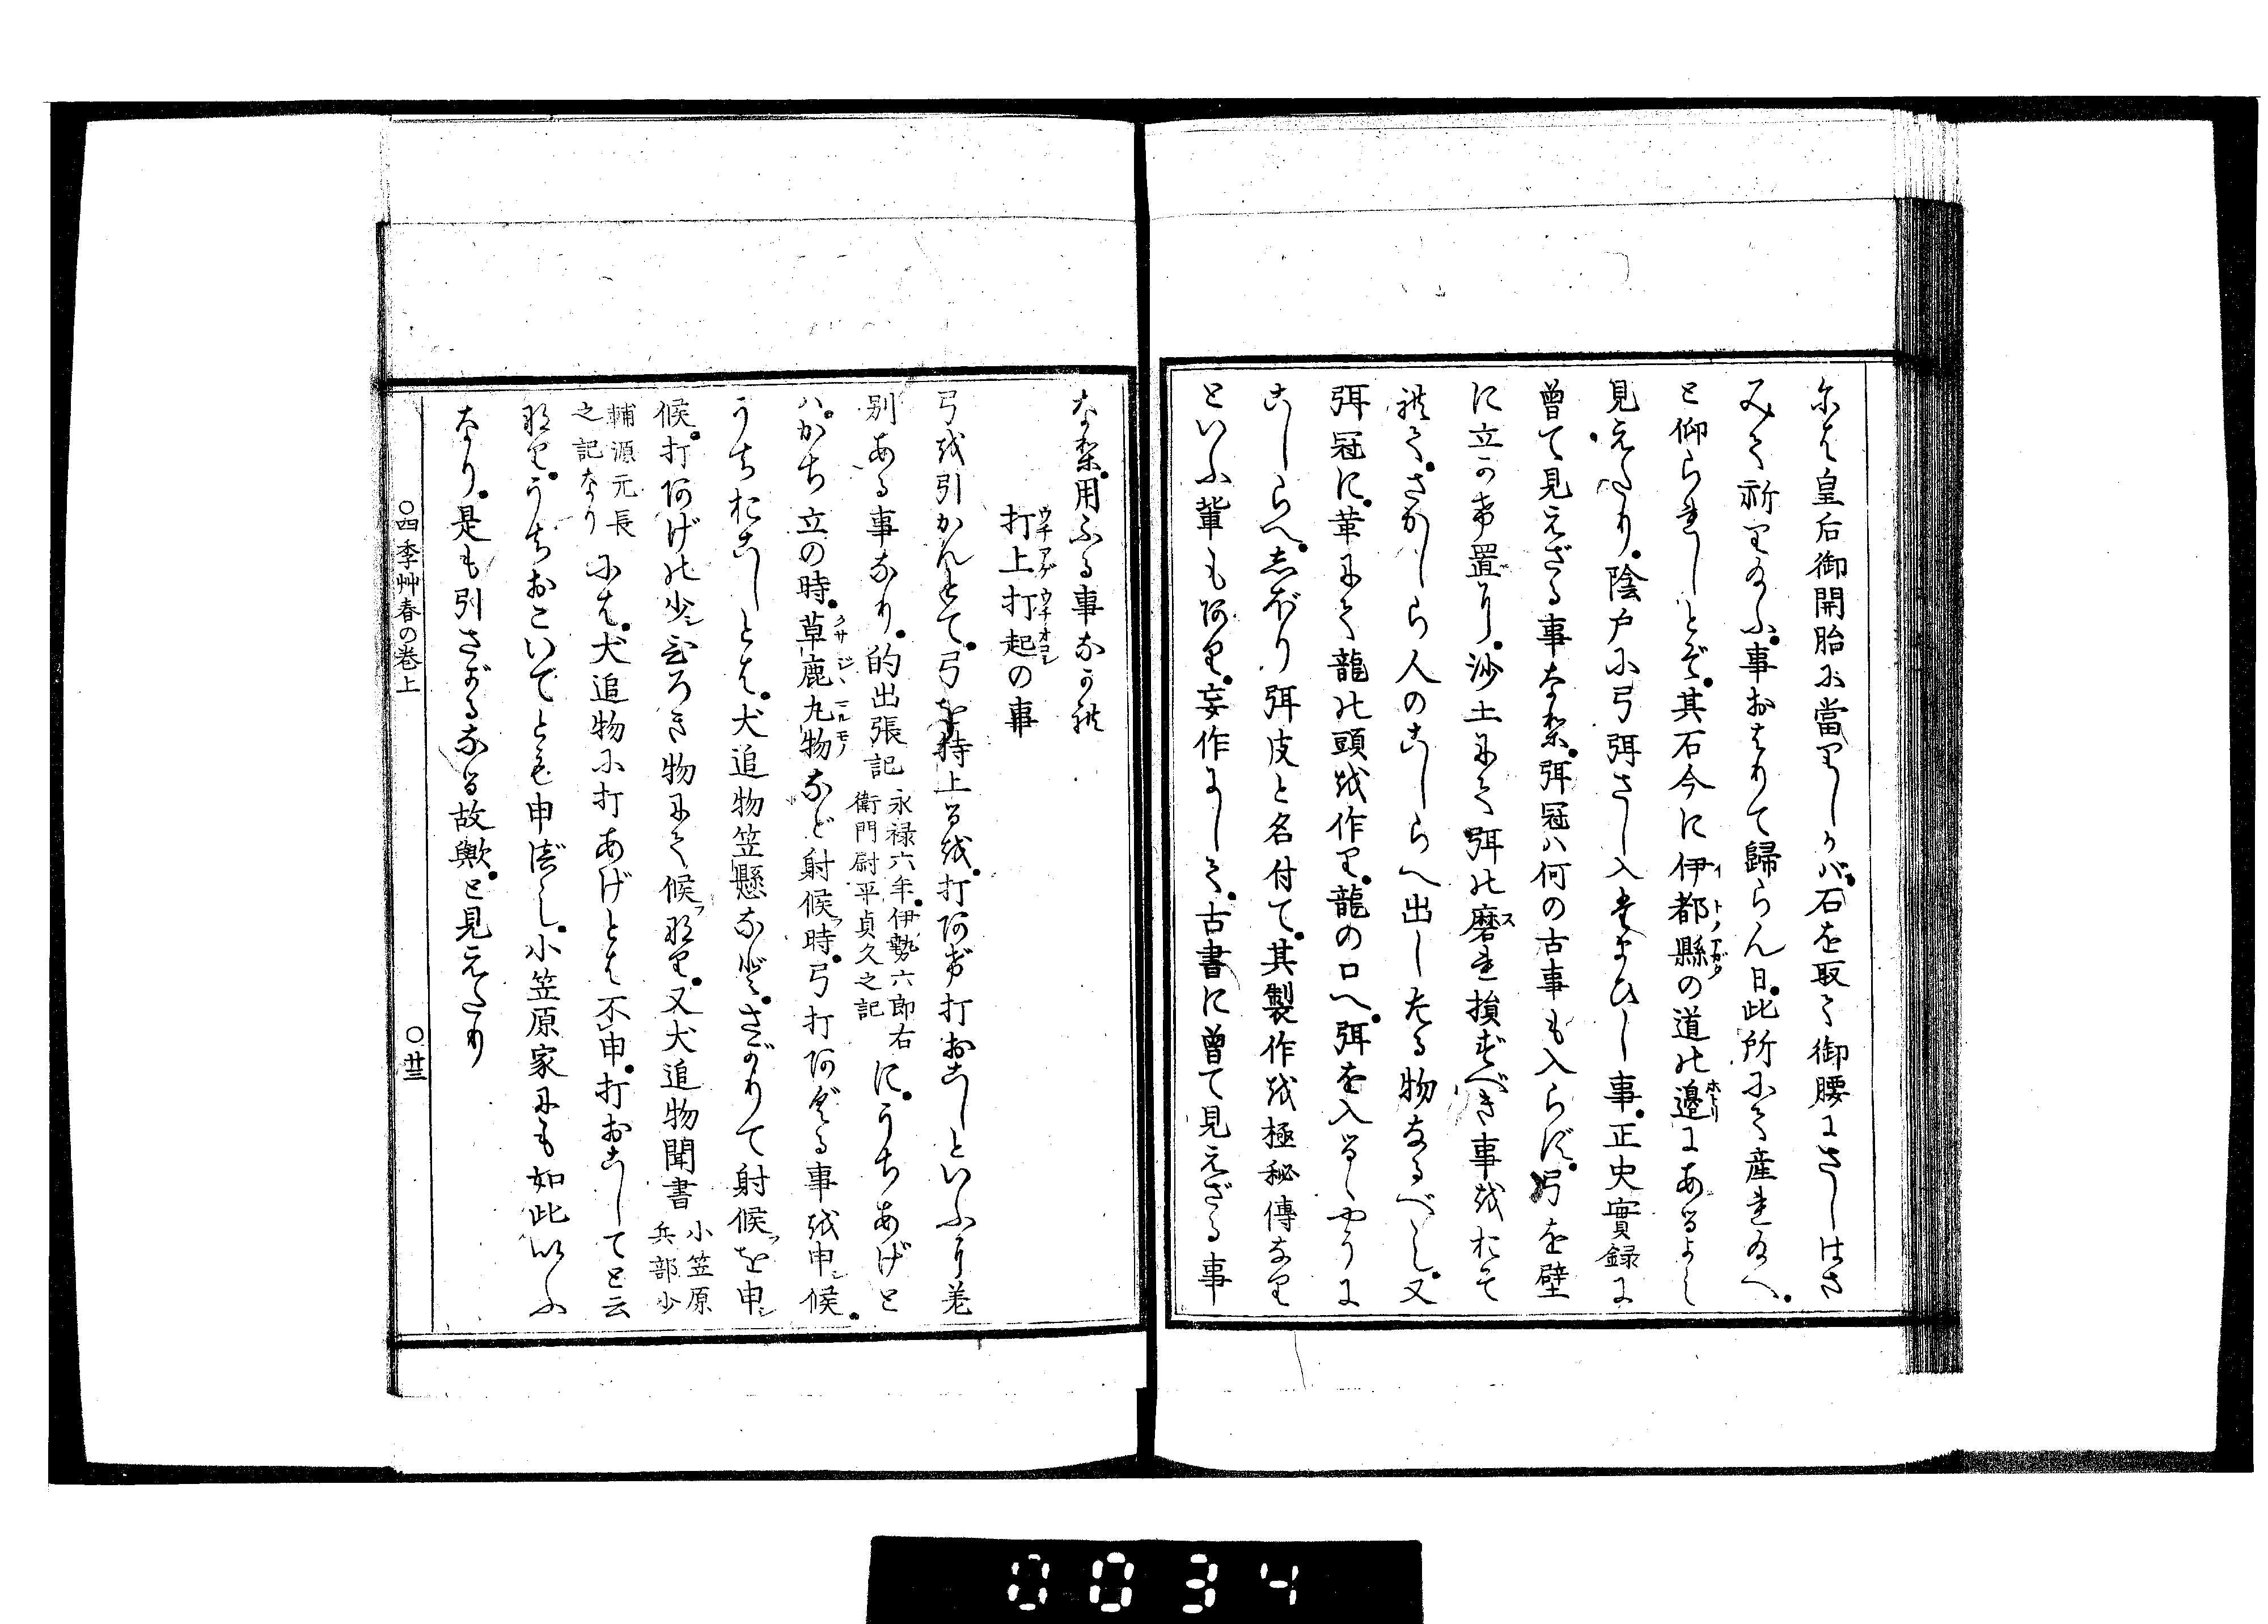 尓も皇后御開胎に當りしかバ。石を取て御腰にさしはさ
みて祈り給ふ。事おもりて歸らん日。此所にて産れ給へ。
と仰られしとぞ。其石今に伊都縣の道の邊にあるよし
見えたり。陰戸に弓弭さし入
事。正史實録に
曾て見えざる事なり。弭冠ハ何の古事も入らず。弓を壁
に立かけ置り。沙土にて弭の磨れ損ずべき事をおそ
れて。さかしら人のこしらへ出したる物なるべし。又
弭冠に。革にて龍の頭を作り。龍の口へ。弭を入るゝやうに
こしらへ。しぼり弭皮と名付て。其製作を極秘傳なり
といふ輩もあり。妄作にして。古書に曾て見えざる事
なり。用ふる事なかれ
打上打起の事
弓を引かんとて。弓を持上るを。打あげ打おこしといふり差
別ある事なり。的出張記
永禄六年。伊勢六郎右
衛門尉平貞久之記
に。うちあげと
ハ。かち立の時。草鹿丸物など射候時。弓打あぐる事を申候。
うちおこしとも。犬追物笠懸など。さがりて射候を申
候。打あげの少しひろき物にて候なり。又犬追物聞書
小笠原
兵部少
輔源元長
之記なり
にも。犬追物に打あげとも不申。打おこしてと云
なり。うちおこいてとも申べし。小笠原家にも如此いふ
なり。是も引さがるなる故歟。と見えたり
○四季艸春の巻上
○廿三
0034